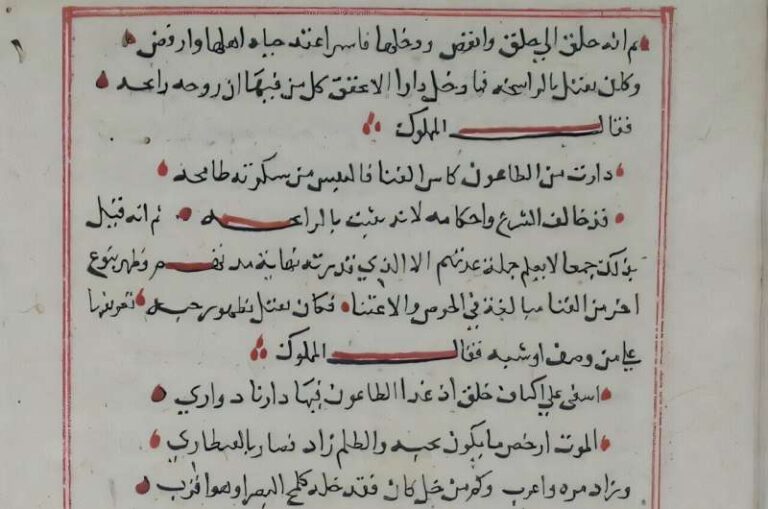 ثم انه حلق الي جلق وانقض ودخلها فاسرا عند حياة اهلها وارفض
وكان يقتل بالرائحه فما دخل دارا الا تحقق كل من فيها ان روحه رائحه
فقال المملوك
دارت من الطاعون كاس الفنا فالنفس من سكرته طافحه
قد خالف الشرع واحكامه لانه يثبت بالرائحه ثم انه قتل
بذلك جمعا لا يعلم جملة عدتهم الا الذي قدرته نهاية مدتهم وظهر بنوع
اخر من الفنا مبالغة في الحرص والاعتنا فكان يقتل بظهور حبه تعويضا
علي من وصف او شبه فقال المملوك
اسفي علي اكناف جلق اذ غدا الطاعون فيها ذا زناد واري
الموت ارخص ما يكون بحبه والظلم زاد فصار بالقنطاري
وزاد مره واعرب وكم من خل كان فقد خله كلمح البصر او هو اقرب